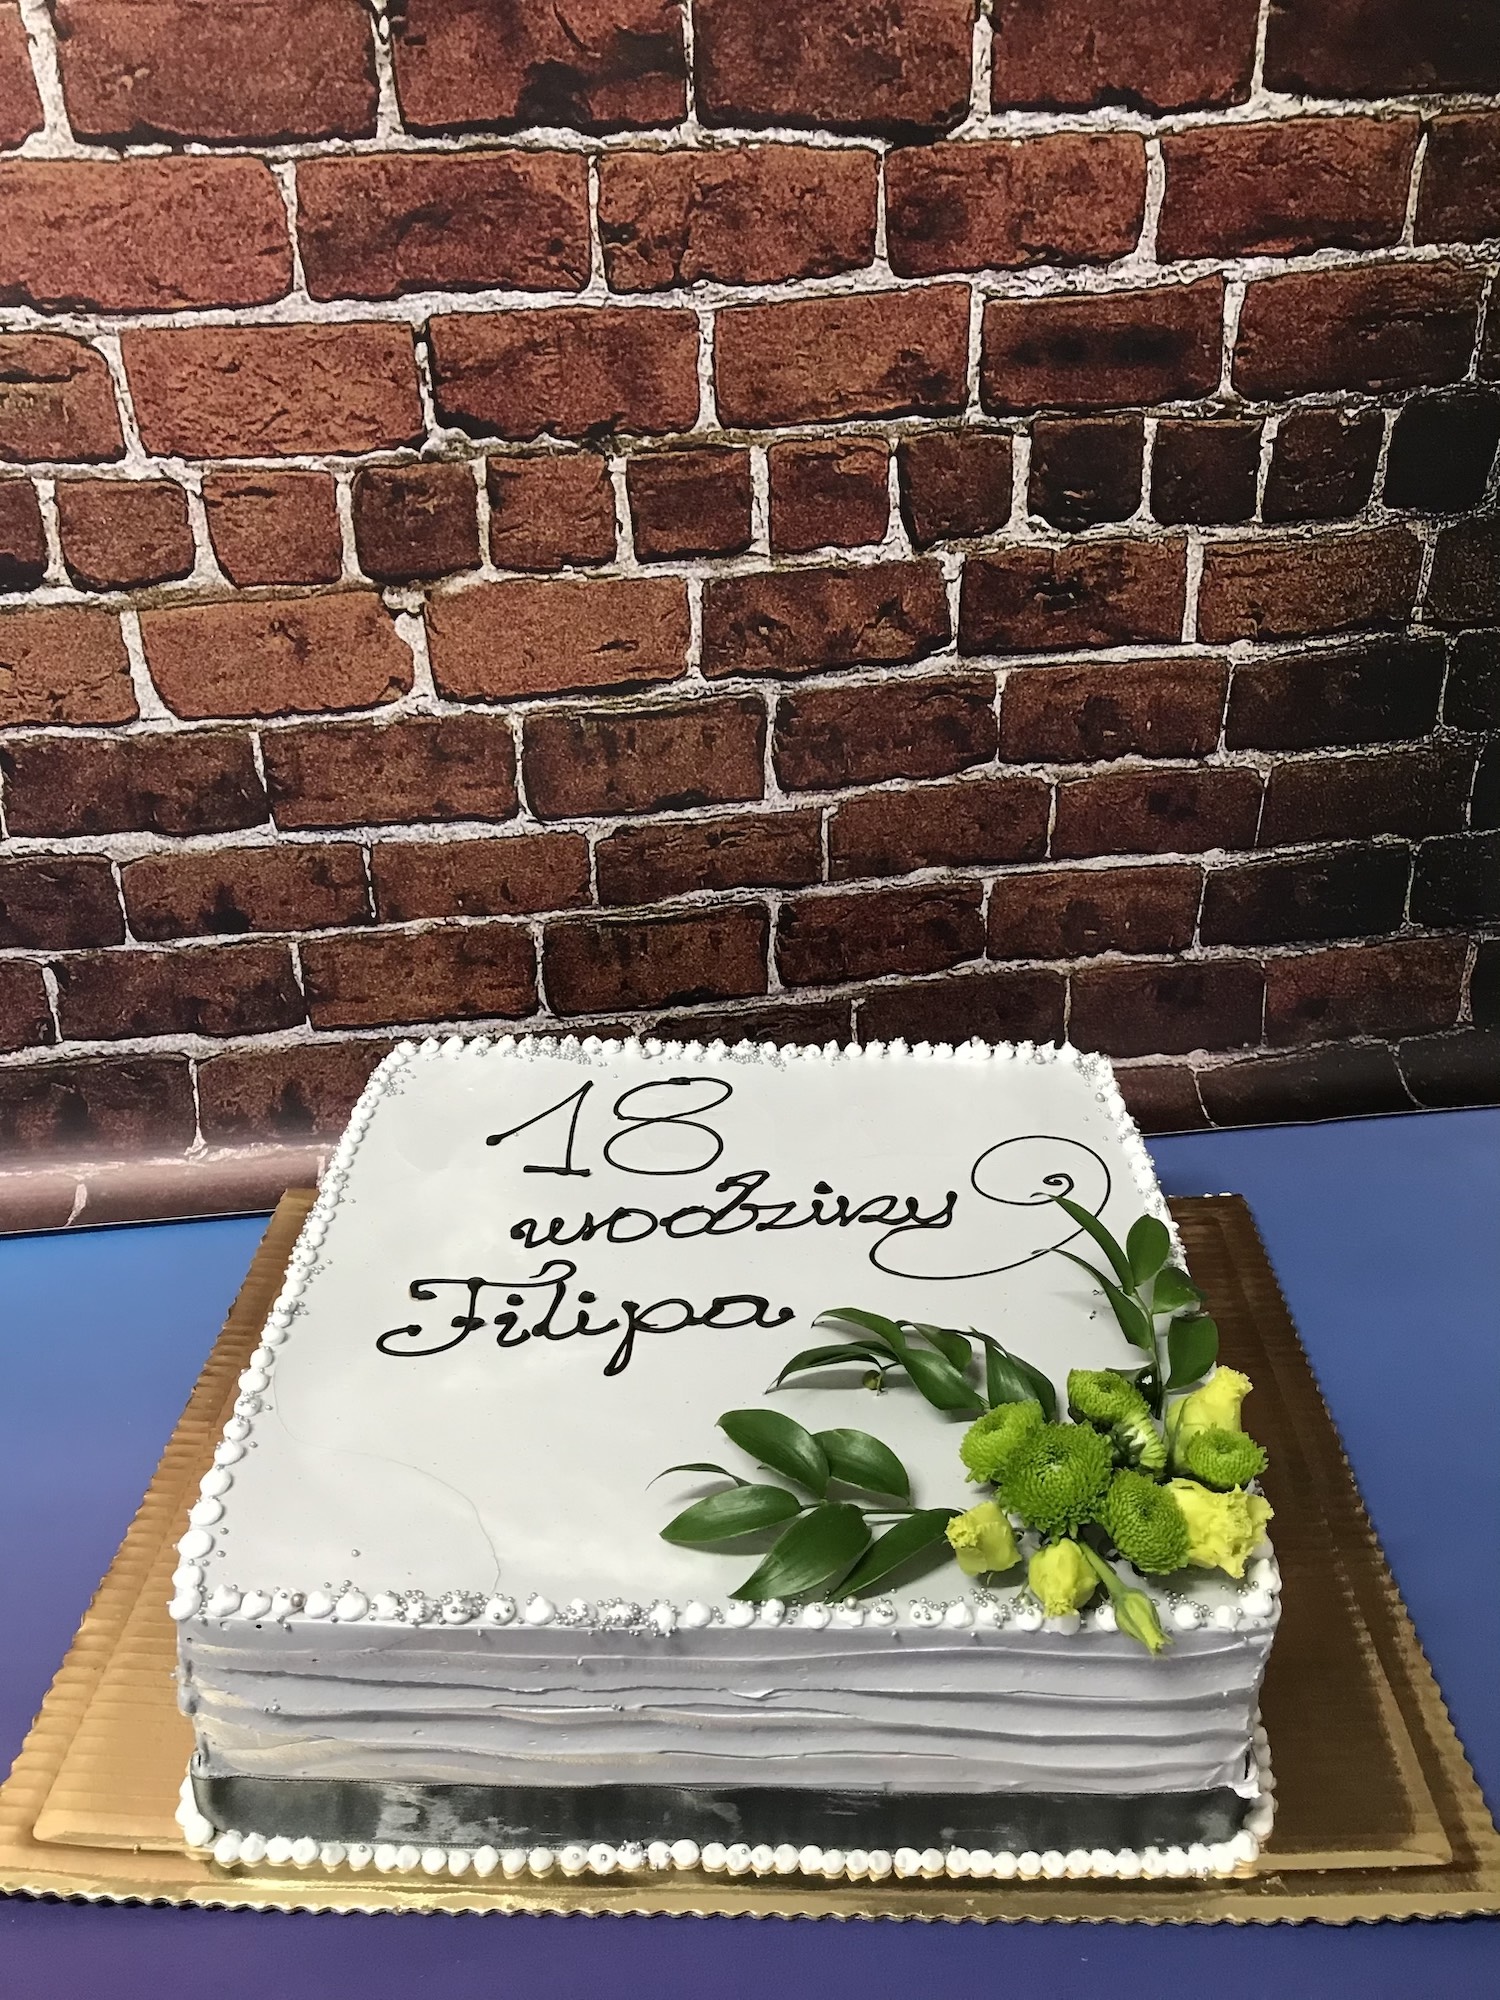 18
urodziny
Filipa